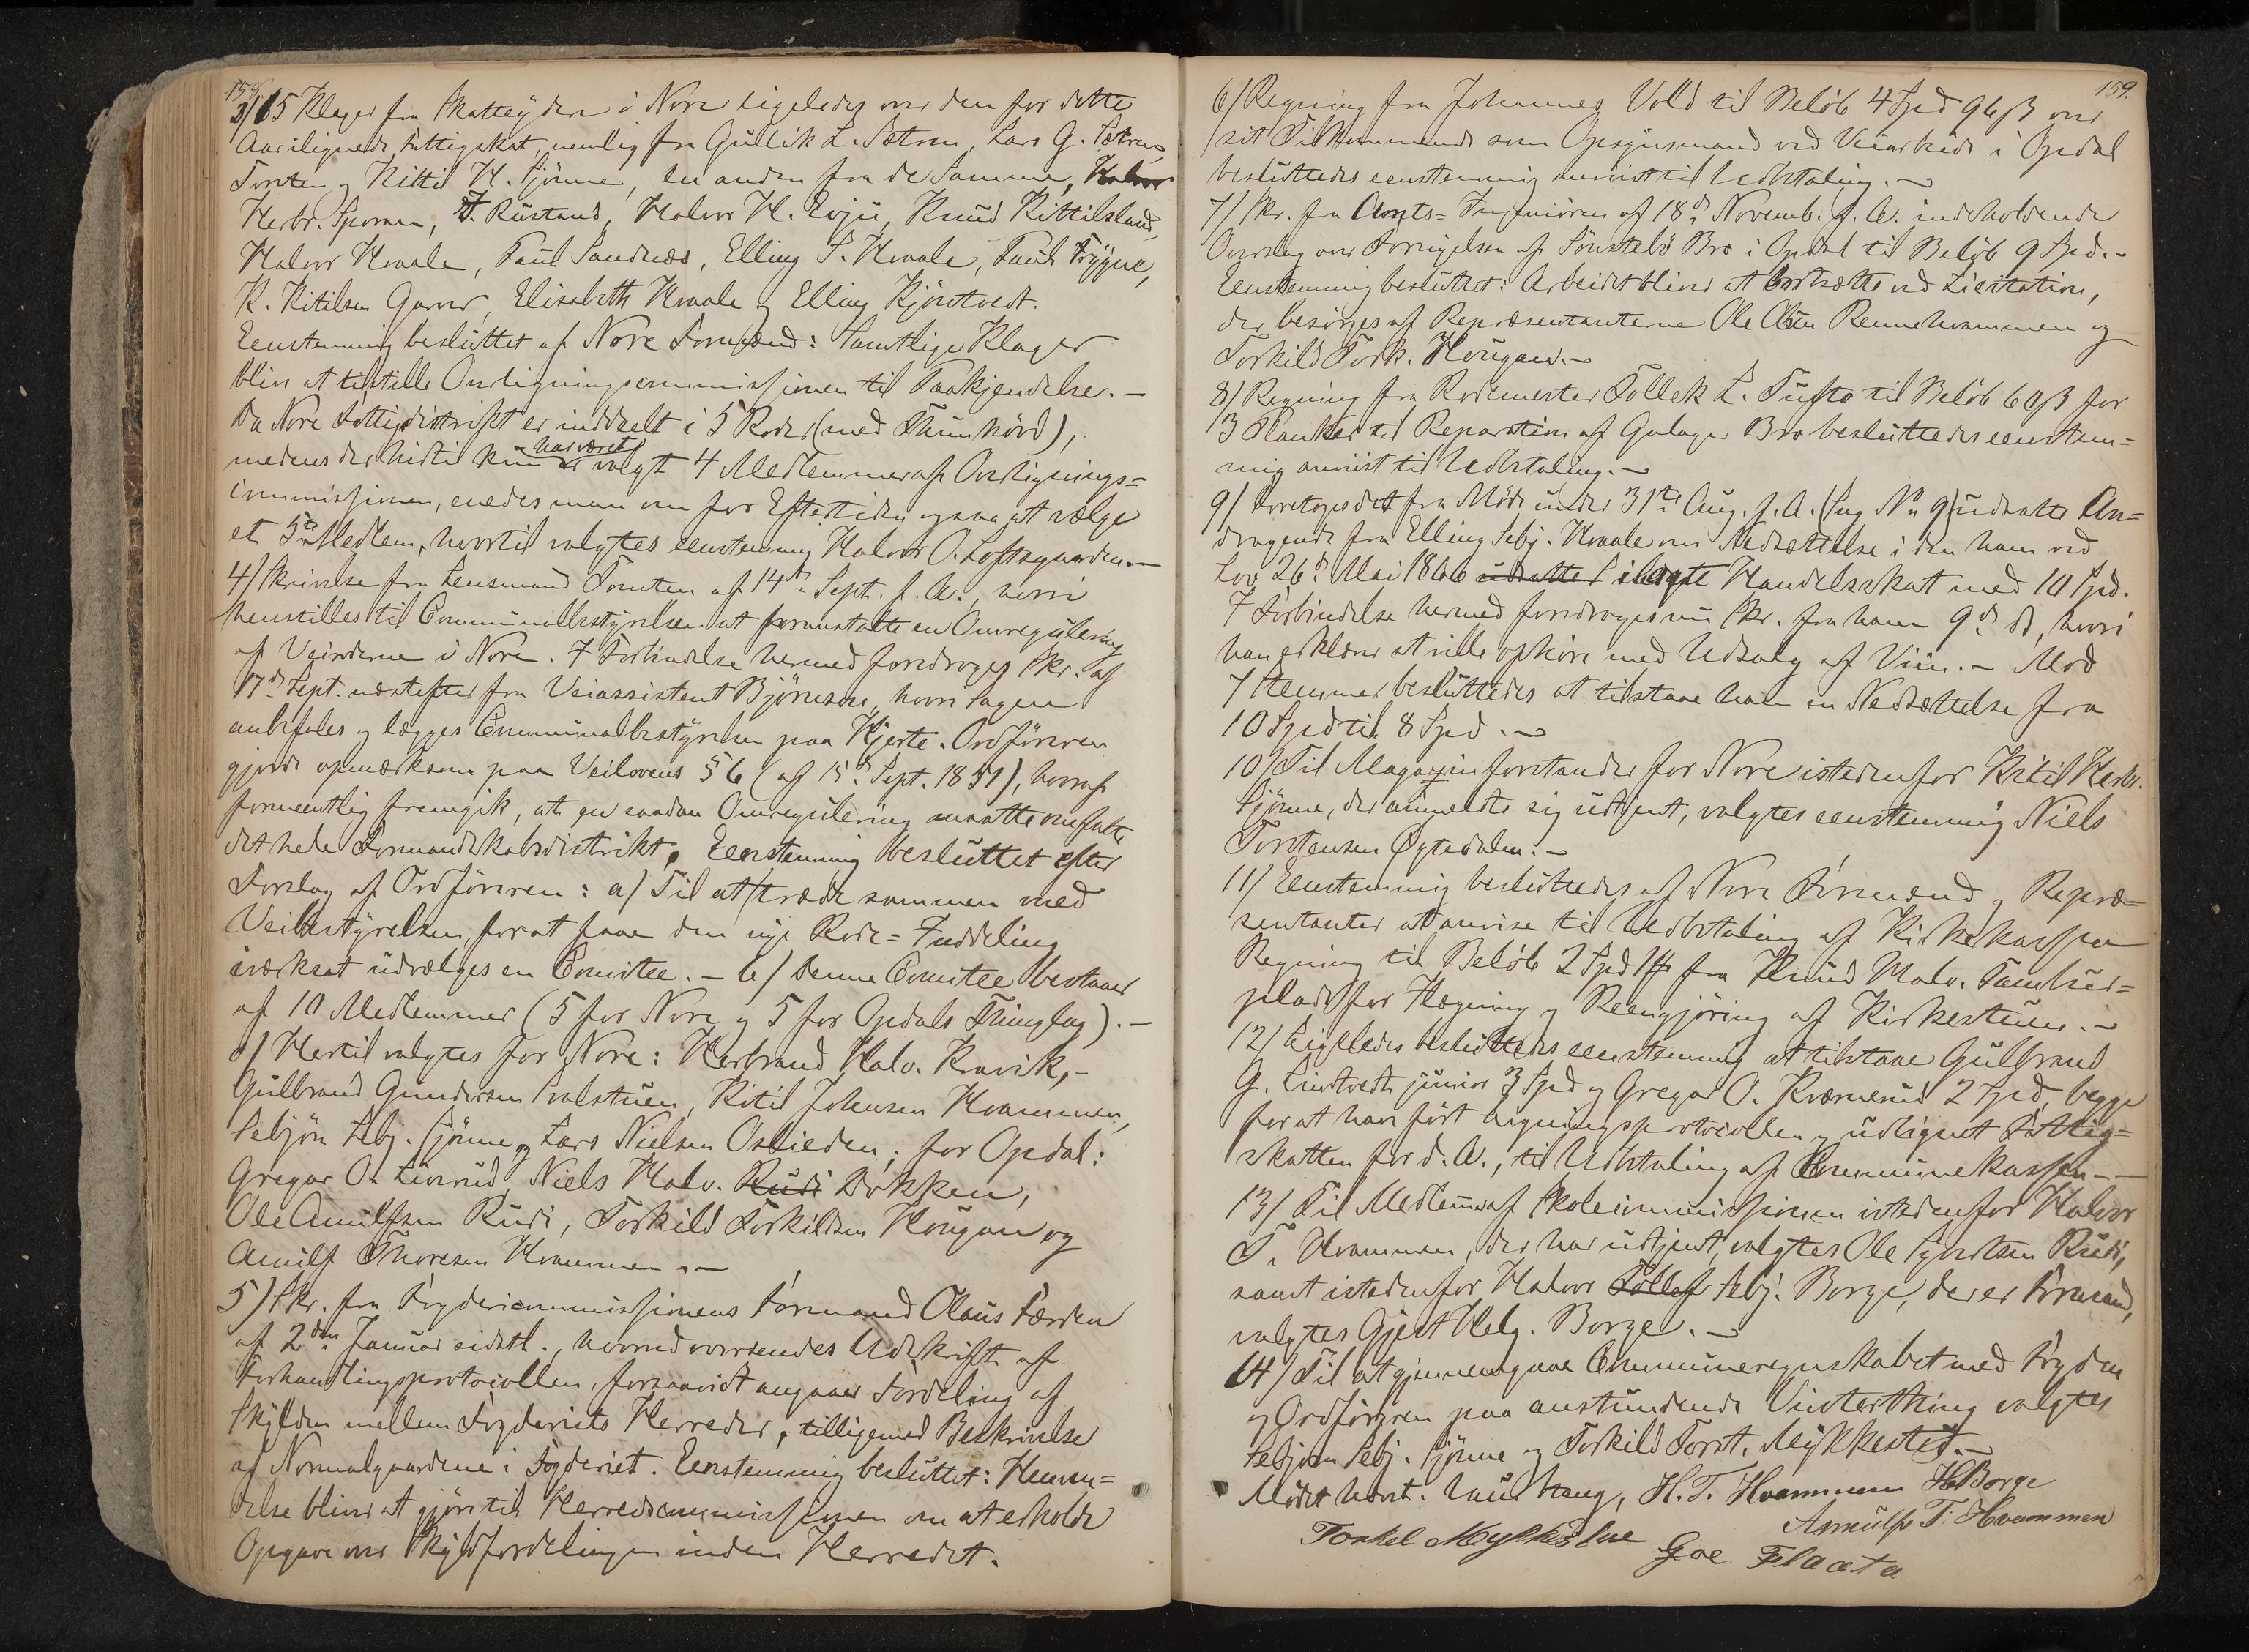 158.
3/ 15 Klager fra Skatteydere i Nore ligeledes over den for dette
Aar ilignede Fattigskat, nemlig fra Gullik L. Sætren, Lars G. Sætren,
Torsten og Kittil H. Sjönne, en anden fra de Samme, Halvor
Herbr. Sporan, T. Rustand, Halvor H. Evju, Knud Kittilsland,
Halvor Hvaale, Paul Sandnæs, Elling S. Hvaale, Paul Frygne,
K. Kitilsen Garver, Elisabeth Hvaale og Elling Kjöntvedt.
Eenstemmig besluttet af Nore Formænd: Samtlige Klager
bliver at tilstille Overligningscommissionen til Paakjendelse. —
Da Nore Fattigdistrikt er inddeelt i 5 Roder (med Thunhövd),
medens der hidtil kun har været valgt 4 Medlemmer af Overlignings=
commissionen, enedes man om for Eftertiden ogsaa at vælge
et 5te Medlem, hvortil valgtes eenstemmig Halvor O. Loftsgaarden. —
4/ Skrivelse fra Lensmand Tomten af 14de Sept. f. A., hvori
henstilles til Communalbestyrelsen at foranstalte en Omregulering
af Veiroderne i Nore. I Forbindelse hermed foredroges Skr. af
17de Sept. næstefter fra Veiassistent Björnsen, hvori Sagen
anbefales og lægges Communalbestyrelsen paa Hjerte. Ordföreren
gjorde opmærksom paa Veilovens § 6 (af 15de Sept. 1851), hvoraf
formeentlig fremgik, at en saadan Omregulering maatte omfatte
det hele Formandskabsdistrikt. Eenstemmig besluttet efter
Forslag af Ordföreren: a/ Til at træde sammen med
Veibestyrelsen, for at faae den nye Rode=Inddeling
iværksat udvælges en Comitee. – b/ Denne Comitee bestaaer
af 10 Medlemmer (5 for Nore og 5 for Opdals Thinglag). —
c/ Hertil valgtes for Nore: Herbrand Halv. Kravik, –
Gulbrand Gundersen Svalstuen, Kitil Johnsen Hvammen,
Sebjörn Sebj. Sjönne og Lars Nielsen Oslieden; for Opdal:
Gregar O. Liverud, Niels Halv. Rudi Dökken,
Ole Arnulfsen Rudi, Torkild Torkildsen Hougan og
Arnulf Thoresen Hvammen. —
5) Skr. fra Fogdericommissionens Formand Olaus Færden
af 2den Januar sidstl., hvorved oversendes Udskrift af
Forhandlingsprotocollen, forsaavidt angaaer Fordeling af
Skylden mellem Fogderiets Herreder, tilligemed Beskrivelse
af Normalgaardene i Fogderiet. Eenstemmig besluttet: Henven=
delse bliver at gjöre til Herredscommissionen om at erholde
Opgave over Skyldfordelingen inden Herredet.
159.
6/ Regning fra Johannes Vold til Belöb 4 Spd 96 ß over
sit Tilkommende som Opsynsmand ved Veiarbeide i Opdal
besluttedes eenstemmig anviist til Udbetaling. —
7/ Skr. fra Amts=Ingeniören af 18de Novemb. f. A. indeholdende
Overslag over Fornyelsen af Sönstebö Bro i Opdal til Belöb 9 Spd. –
Eenstemmig besluttet: Arbeidet bliver at bortsætte ved Licitation,
der besörges af Repræsentanterne Ole Olsen Rennehvammen og
Torkild Tork. Hougan. —
8/ Regning fra Rodemester Tollek L. Tufto til Belöb 60 ß for
3 Planker til Reparation af Gulager Bro besluttedes eenstem=
mig anviist til Udbetaling. —
9/ Foretoges det fra Möde under 31te Aug. f. A. (Sag No 9) udsatte An=
dragende fra Elling Sebj. Hvaale om Nedsættelse i den ham ved
Lov 26de Mai 1866 udsatte ilagte Handelsskat med 10 Spd.
I Forbindelse hermed foredroges nu Skr. fra ham 9de ds, hvori
han erklærer at ville ophöre med Udsalg af Viin. – Mod
7 Stemmer besluttedes at tilstaae ham en Nedsættelse fra
10 Spd til 8 Spd. —
10/ Til Magazinforstander for Nore istedenfor Kitil Herbr.
Sjönne, der anmeldte sig udtjent, valgtes eenstemmig Niels
Torstensen Öygtedalen. —
11/ Eenstemmig besluttedes af Nore Formænd og Repræ=
sentanter at anvise til Udbetaling af Kirkekassen
Regning til Belöb 2 Spd fra Knud Halv. Tambur=
plads for Hægning og Reengjöring af Kirkestuen. —
12/ Ligeledes besluttedes eenstemmig at tilstaae Gulbrand
G. Lindtvedt junior 3 Spd og Gregar O. Kværnrud 2 Spd, begge
for at have fört Ligningsprotocollen og udlignet Fattig=
skatten for d. A., til Udbetaling af Communekassen. —
13/ Til Medlem af Skolecommissionen istedenfor Halvor
T. Hvammen, der har udtjent, valgtes Ole Syvertsen Rudi,
samt istedenfor Halvor Tollef Sebj. Borge, der er Formand,
valgtes Gjest Helg. Borge. —
14/ Til at gjennemgaae Communeregnskabet med Fogden
og Ordföreren paa anstundende Vinterthing valgtes
Sebjörn Sebj. Sjönne og Torkild Torst. Mykkested. —
Mödet hævet. Haug, H. T. Hvammen HBorge
Arnulf T. Hvammen
Torkel Mykkestue Goe Flaata